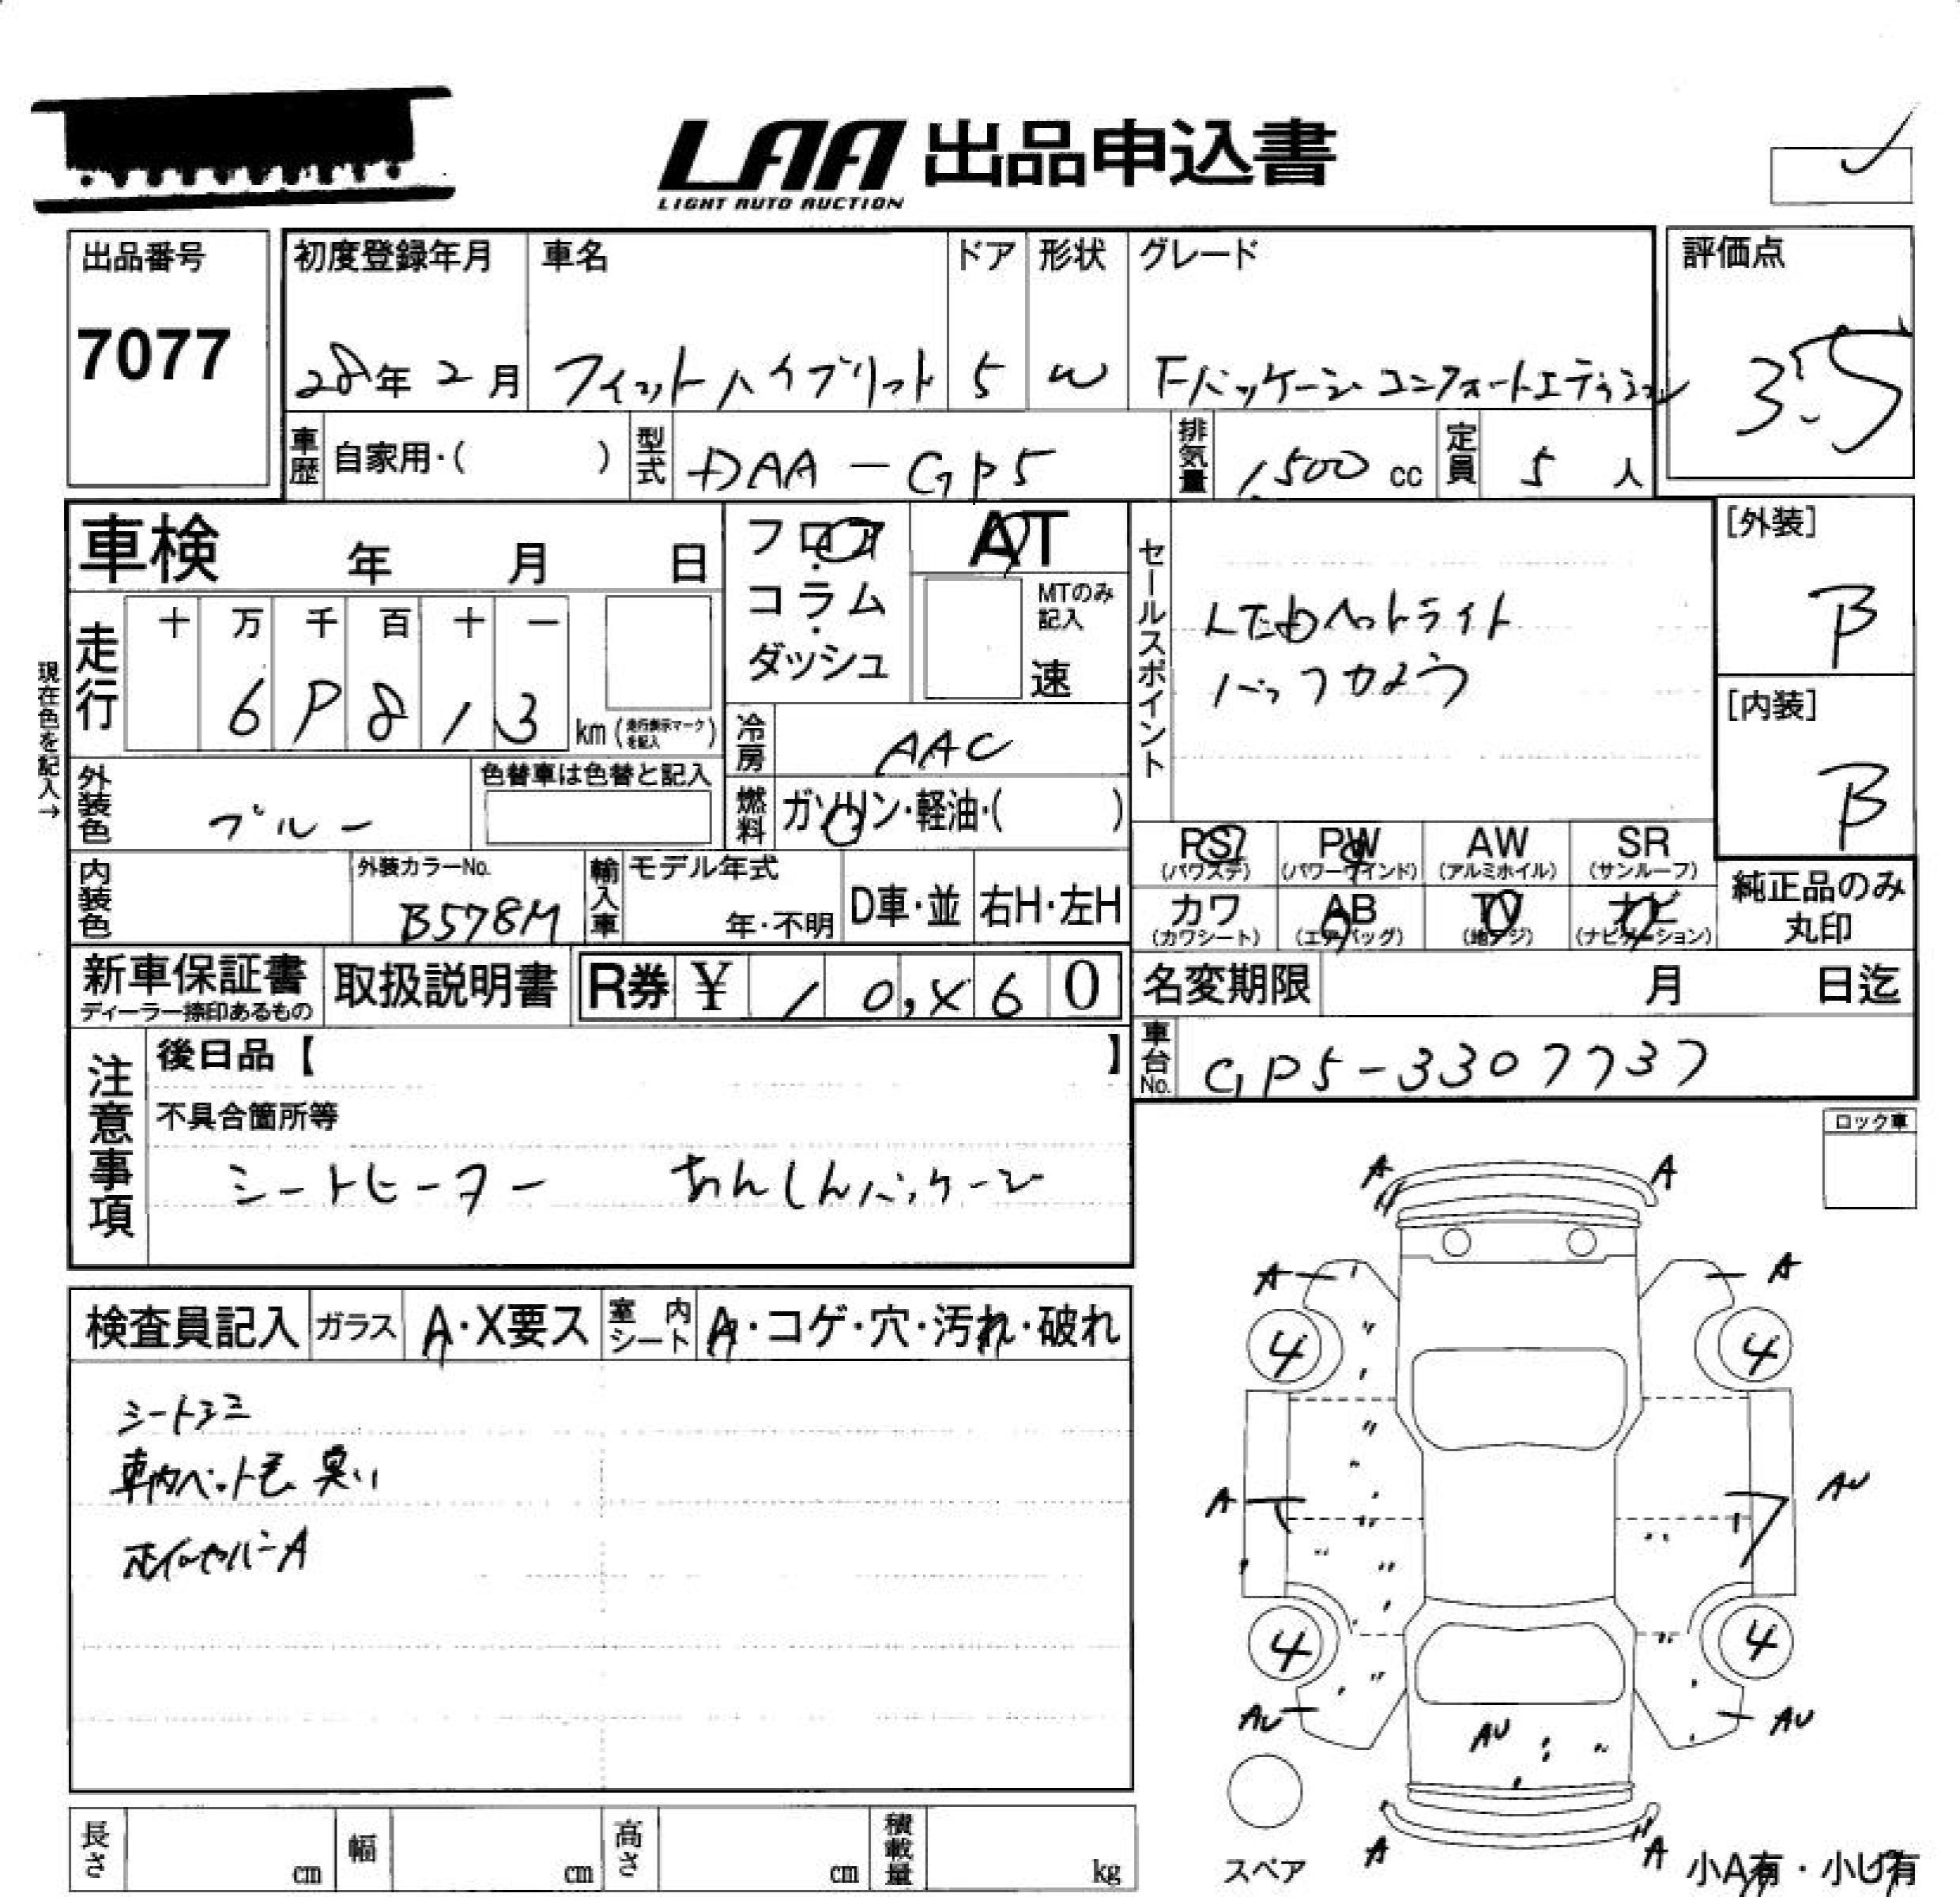 LAA 出品申込書
LIGHT AUTO AUCTION
出品番号
7077
初度登録年月
28年 2月
車名
フィットハイブリット
ドア
5
形状
W
グレード
Fパッケージ コンフォートエディション
評価点
3.5
車歴 自家用・( )
型式 DAA-GP5
排気量 1,500 cc
定員 5 人
車検 年 月 日
フロア・コラム・ダッシュ
AT
MTのみ記入
速
セールスポイント
LEDヘットライト
バックカメラ
[外装]
B
[内装]
B
現在色を記入→
走行 十 万 千 百 十 一
6 9 8 1 3 km (走行表示マークを記入)
冷房 AAC
外装色 ブルー
色替車は色替と記入
燃料 ガソリン・軽油・( )
PS (パワステ) PW (パワーウインド) AW (アルミホイル) SR (サンルーフ)
カワ (カワシート) AB (エアバッグ) TV (地デジ) ナビ (ナビゲーション)
純正品のみ丸印
内装色
外装カラーNo.
B578M
輸入車 モデル年式
年・不明 D車・並 右H・左H
新車保証書 ディーラー捺印あるもの
取扱説明書
R券 ¥ 10,×60
名変期限 月 日迄
車台No. GP5-3307737
注意事項
後日品【 】
不具合箇所等
シートヒーター あんしんパッケージ
ロック車
検査員記入 ガラス A・X要ス 室内シート A・コゲ・穴・汚れ・破れ
シートシミ
車内ペット毛 臭い
ホイールカバーA
A A
A A
4 4
A AU
4 4
AU AU
AU
A A
スペア
小A有・小U有
長さ cm 幅 cm 高さ cm 積載量 kg